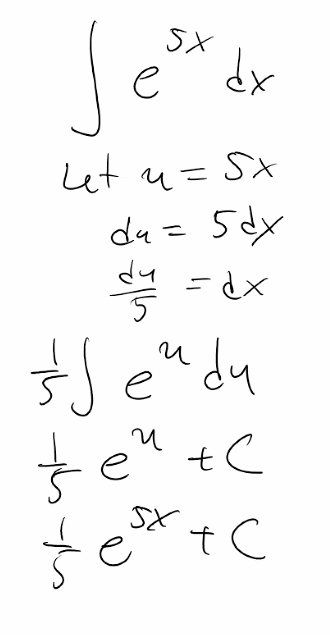 ∫ e^{5x} dx
Let u = 5x
du = 5dx
du/5 = dx
1/5 ∫ e^u du
1/5 e^u + C
1/5 e^{5x} + C